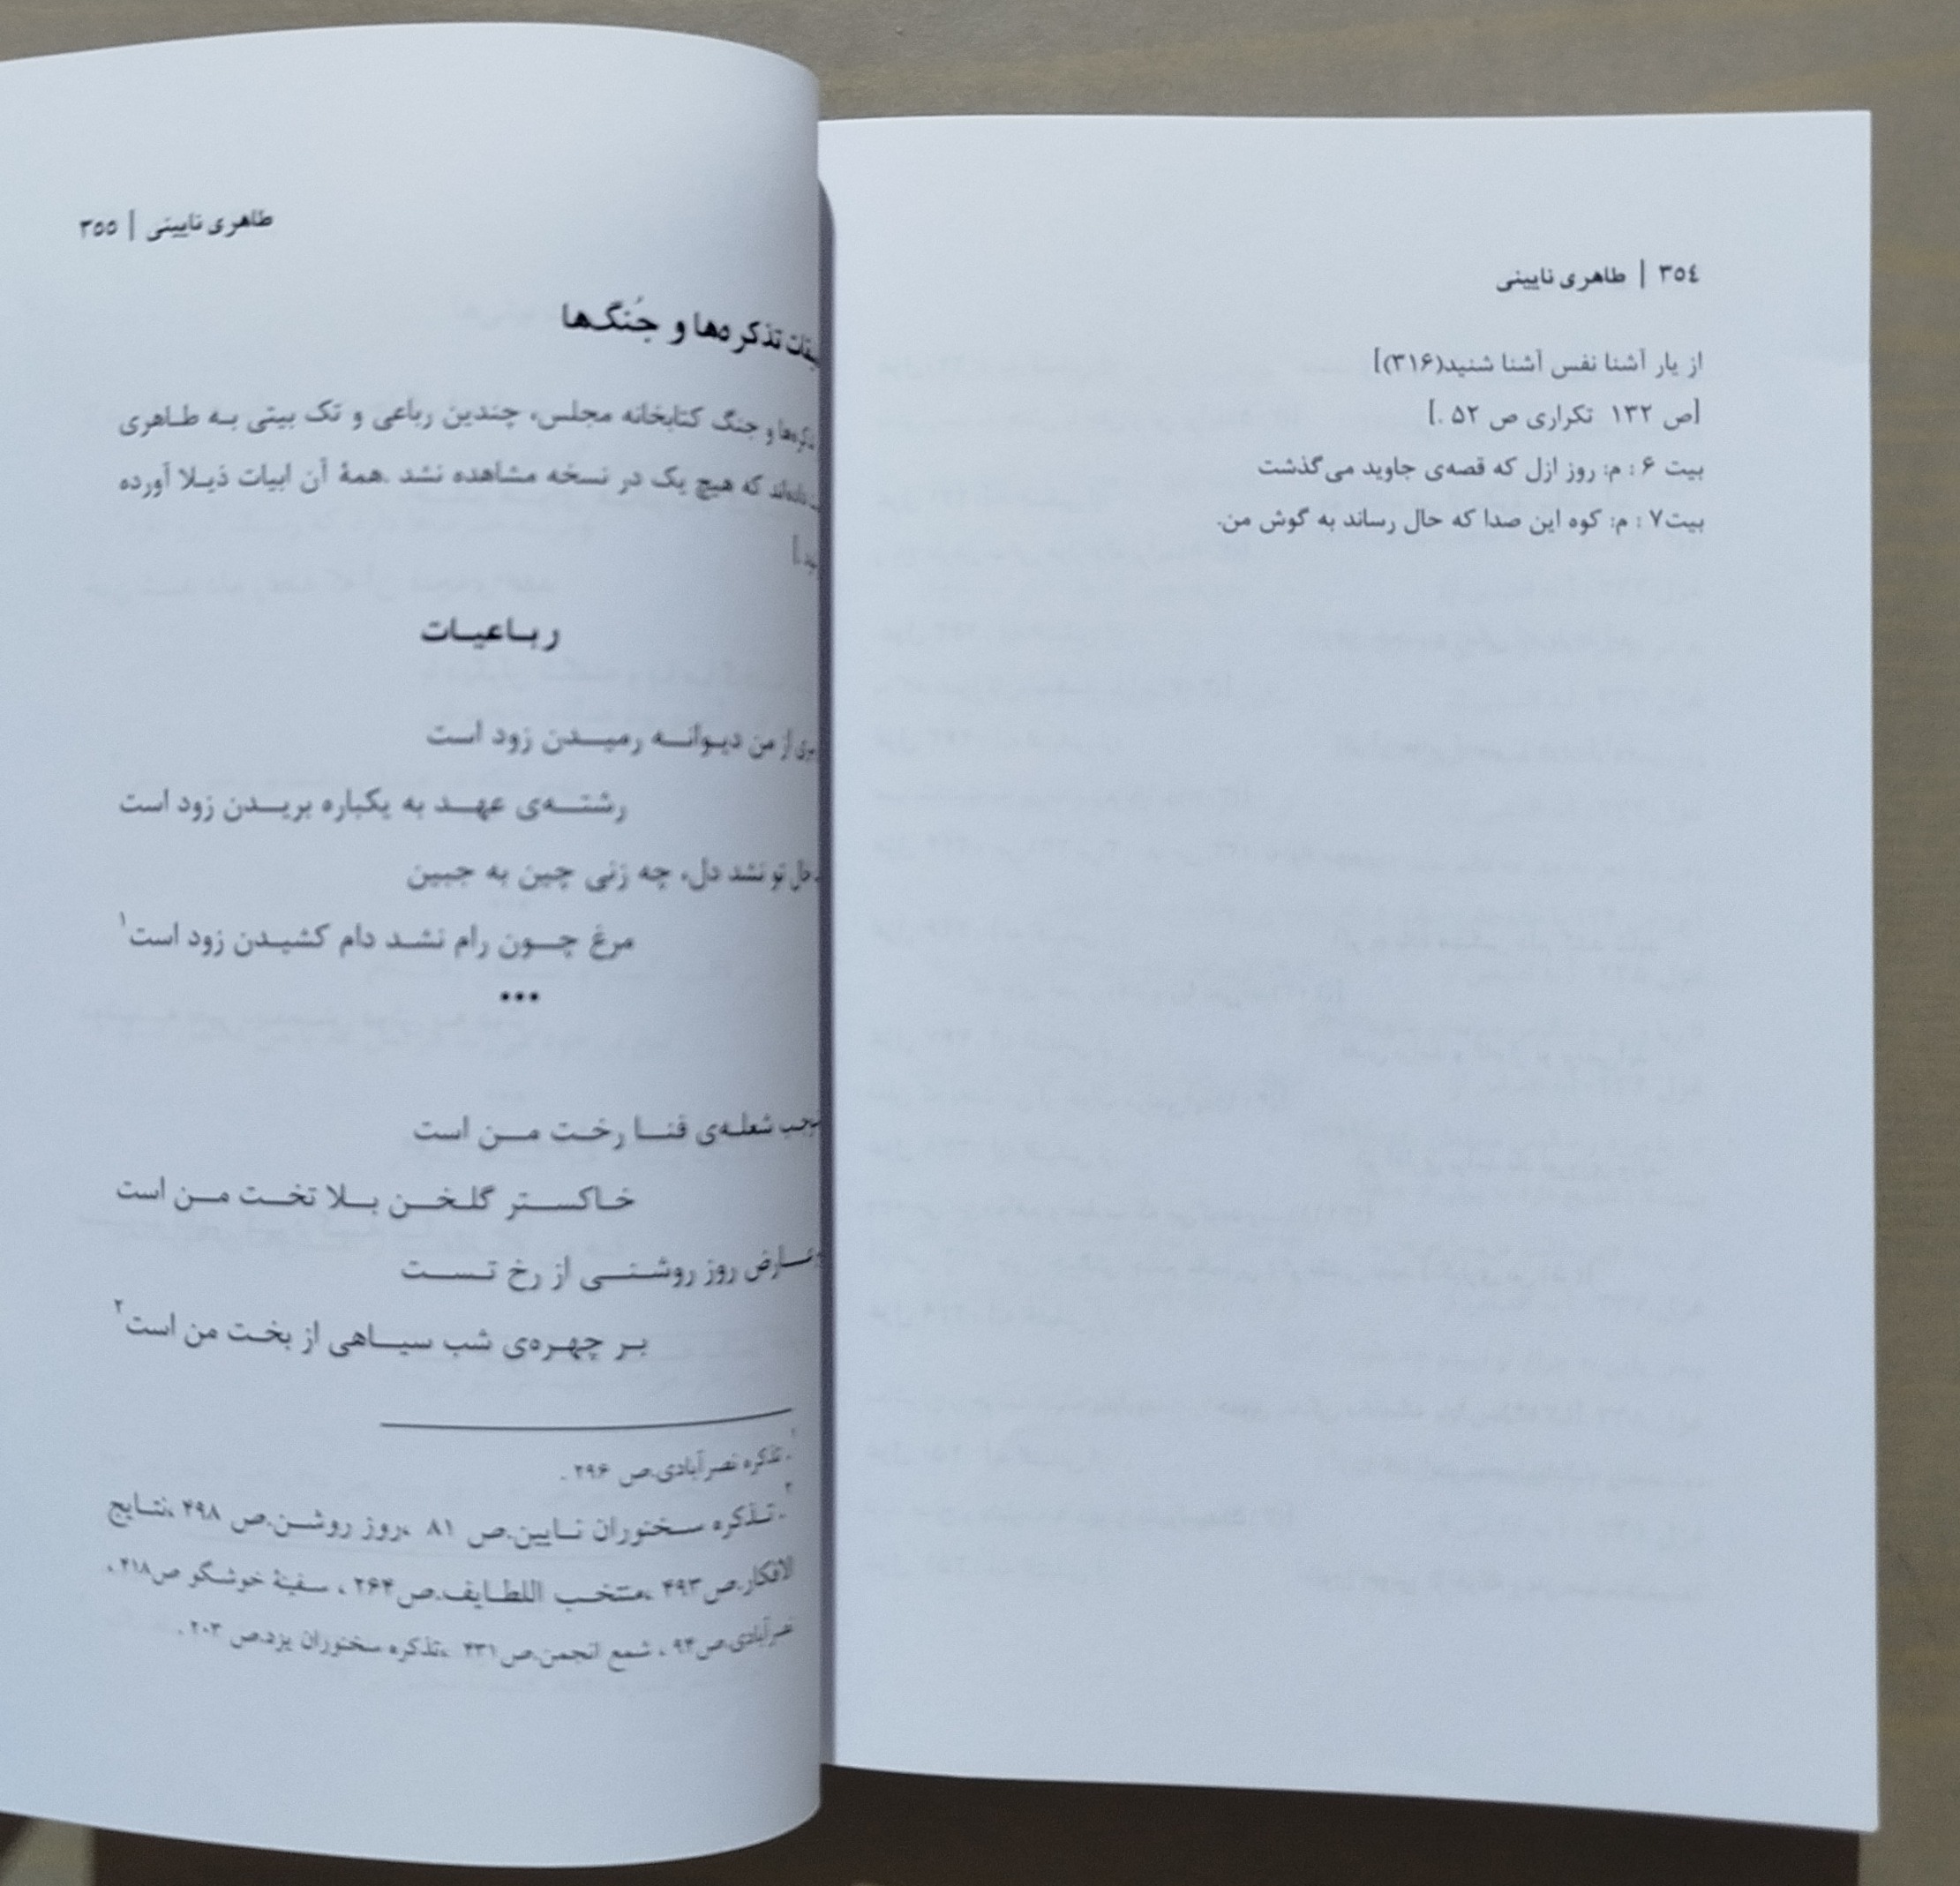 ۳۵٤ | طاهری نایینی
از یار آشنا نفس آشنا شنید(۳۱۶)]
[ص ۱۳۲ تکراری ص ۵۲ .]
بیت ۶ : م: روز ازل که قصه‌ی جاوید می‌گذشت
بیت۷ : م: کوه این صدا که حال رساند به گوش من.
طاهری نایینی | ۳۵۵
تذکره‌ها و جُنگ‌ها
و جنگ کتابخانه مجلس، چندین رباعی و تک بیتی به طاهری
که هیچ یک در نسخه مشاهده نشد .همهٔ آن ابیات ذیلا آورده
رباعیات
از من دیوانه رمیدن زود است
رشته‌ی عهد به یکباره بریدن زود است
تو نشد دل، چه زنی چین به جبین
مرغ چون رام نشد دام کشیدن زود است۱
•••
شعله‌ی فنا رخت من است
خاکستر گلخن بلا تخت من است
روز روشنی از رخ تست
بر چهره‌ی شب سیاهی از بخت من است۲
۱ـ تذکره نصرآبادی.ص ۲۹۶ .
۲ـ تذکره سخنوران نایین.ص ۸۱ ،روز روشن.ص ۴۹۸ ،نتایج
الافکار.ص۴۹۳ ،منتخب اللطایف.ص۲۶۴ ، سفینهٔ خوشگو ص۴۱۸ ،
نصرآبادی.ص۹۴ ، شمع انجمن.ص۴۳۱ ،تذکره سخنوران یزد.ص ۲۰۳ .